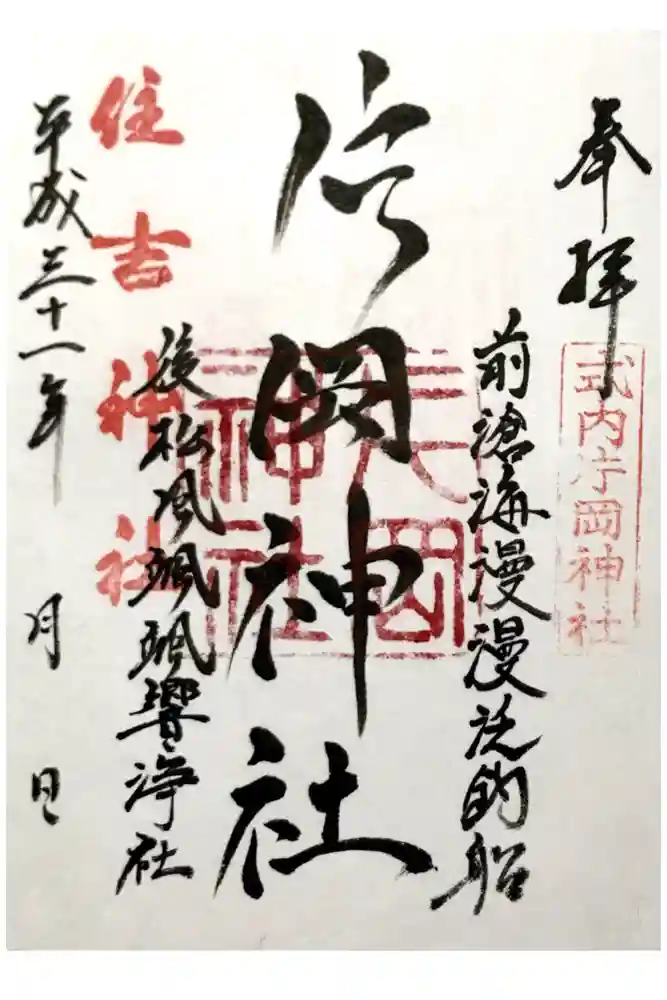 奉拝
式内片岡神社
前滄海漫漫泛釣船
片岡神社
片岡神社
後松風颯颯響浄社
住吉神社
平成三十一年 月 日